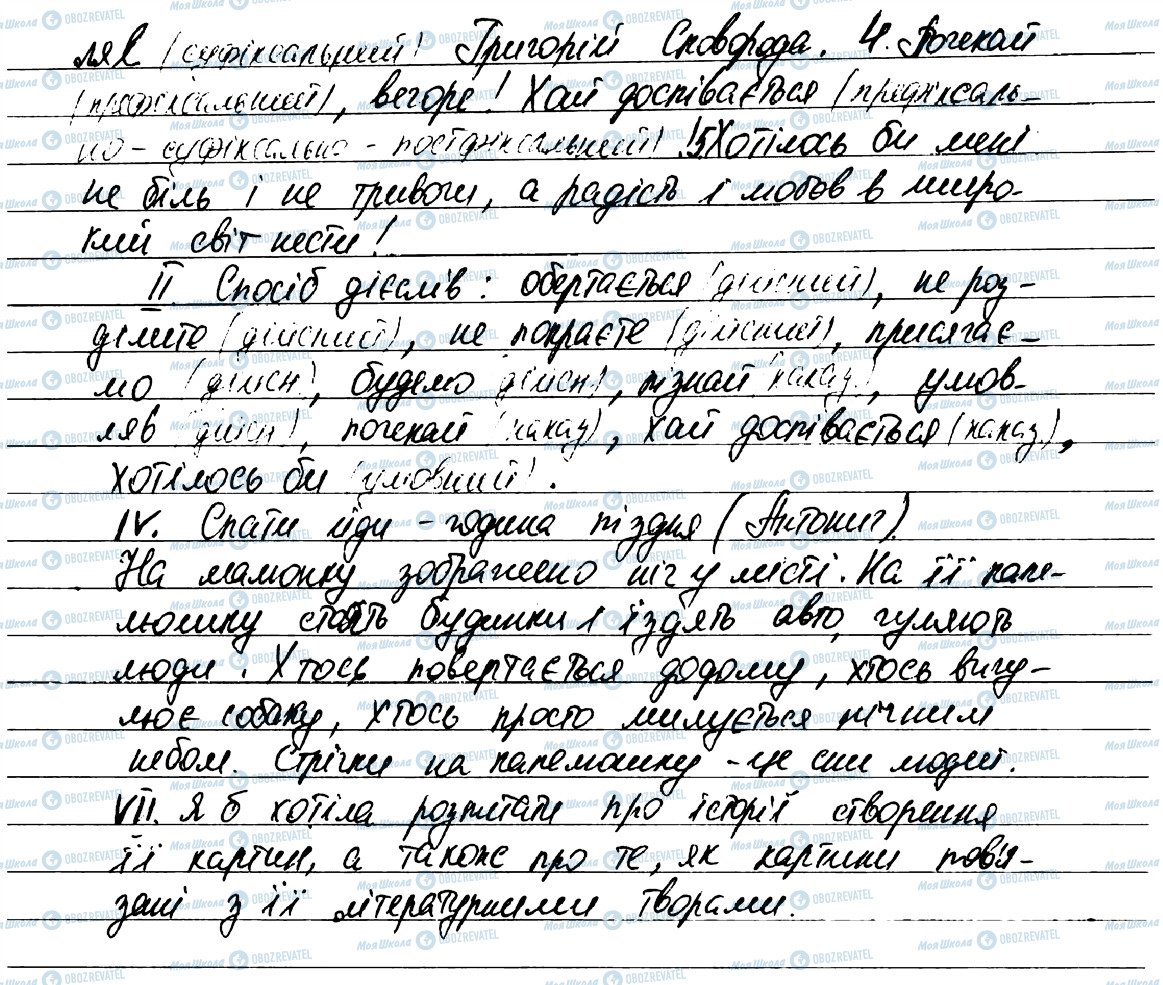 ляв (суфіксальний) Григорій Сковорода. 4. Почекай
(префіксальний), вечоре! Хай доспівається (префіксаль-
но-суфіксально-постфіксальний)! 5 Хотілось би мені
не біль і не тривоги, а радість і любов в широ-
кий світ нести!
II. Спосіб дієслів: обертається (дійсний), не роз-
ділите (дійсний), не покраєте (дійсний), присягає-
мо (дійсн), будемо (дійсн), пізнай (наказ.), умов-
ляв (дійсн), почекай (наказ), хай доспівається (наказ.),
хотілось би (умовний).
IV. Спати йди - година пізня (Антонич).
На малюнку зображено ніч у місті. На її капе-
люшику стоять будинки і їздять авто, гуляють
люди. Хтось повертається додому, хтось вигу-
лює собаку, хтось просто милується нічним
небом. Стрічки на капелюшку - це сни людей.
VII. Я б хотіла розпитати про історії створення
її картин, а також про те, як картини пов'я-
зані з її літературними творами.